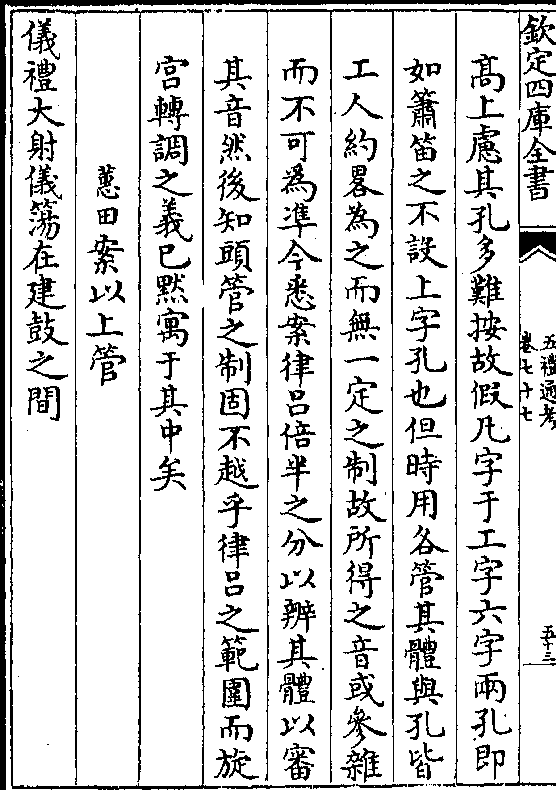 欽定四庫全書
五禮通考
卷七十七
五十三
髙上慮其孔多難按故假凡字于工字六字兩孔即
如簫笛之不設上字孔也但時用各管其體與孔皆
工人約畧為之而無一定之制故所得之音或參雜
而不可為凖今悉案律吕倍半之分以辨其體以審
其音然後知頭管之制固不越乎律吕之範圍而旋
宫轉調之義已黙寓于其中矣
蕙田案以上管
儀禮大射儀簜在建鼓之間